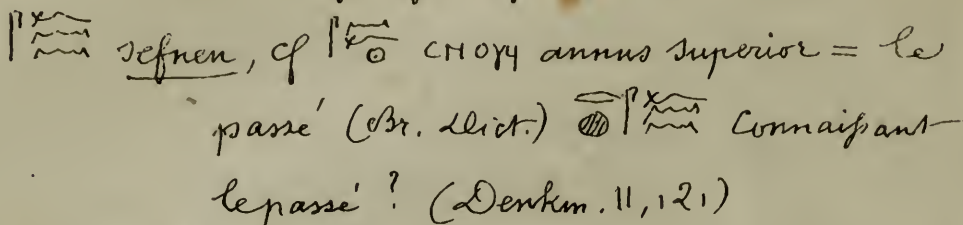 sefnen, cf ⲥⲛⲟⲩϥ annus superior = le
passé (Br. Dict.) connaissant
le passé? (Denkm. II, 121)